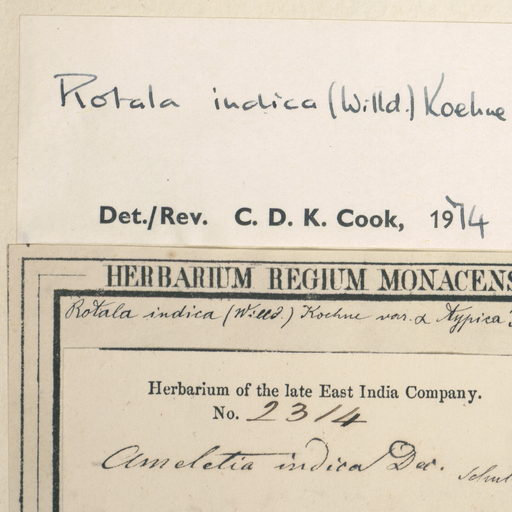 Rotala indica (Willd.) Koehne
Det./Rev. C. D. K. Cook, 1974
HERBARIUM REGIUM MONACENS
Rotala indica (Willd.) Koehne var. α typica
Herbarium of the late East India Company.
No. 2314
Ameletia indica Dec.